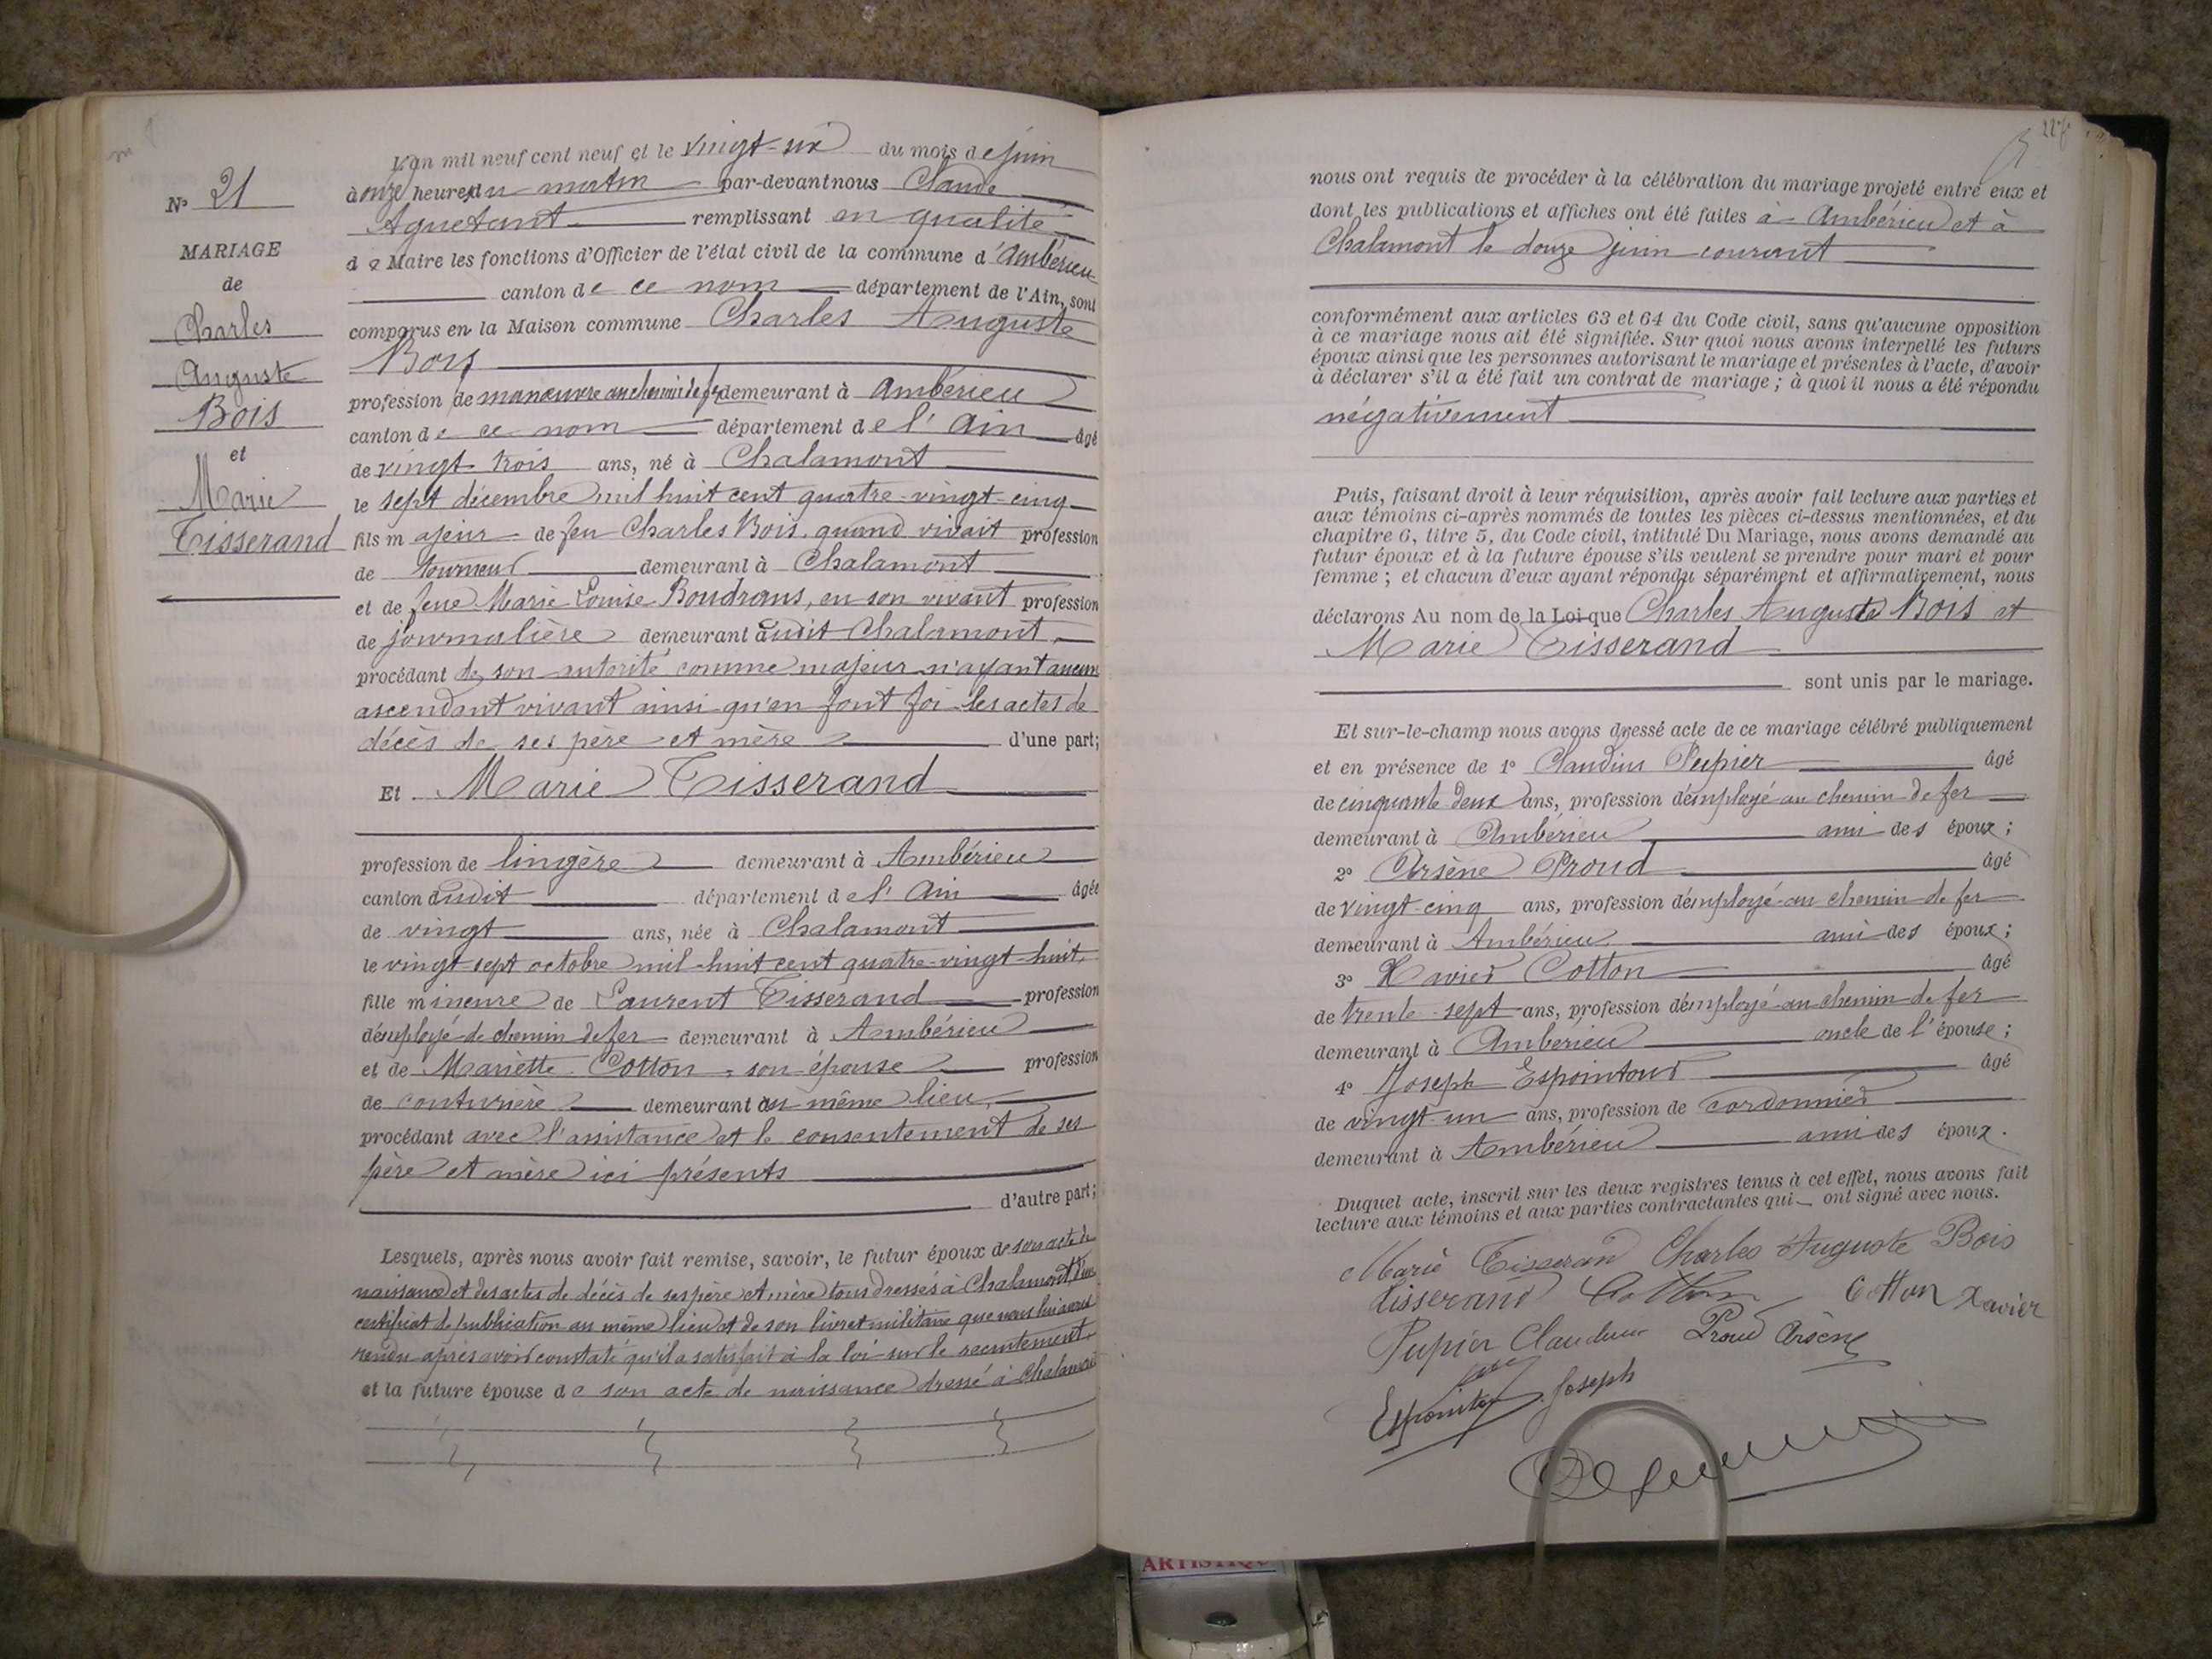 N° 21
MARIAGE
de
Charles
Auguste
Bois
et
Marie
Tisserand
L'an mil neuf cent neuf et le vingt-six du mois de juin
à onze heures du matin par-devant nous Claude
Aguetant remplissant en qualité
de Maire les fonctions d'Officier de l'état civil de la commune d'Ambérieu
canton de ce nom département de l'Ain, sont
comparus en la Maison commune Charles Auguste
Bois
profession de manœuvre au chemin de fer demeurant à Ambérieu
canton de ce nom département de l'Ain âgé
de vingt-trois ans, né à Chalamont
le sept décembre mil huit cent quatre-vingt-cinq
fils majeur de feu Charles Bois, quand vivait profession
de tourneur demeurant à Chalamont
et de feue Marie Louise Boudrans, en son vivant profession
de journalière demeurant audit Chalamont,
procédant de son autorité comme majeur n'ayant aucun
ascendant vivant ainsi qu'en font foi les actes de
décès de ses père et mère d'une part;
Et Marie Tisserand
profession de lingère demeurant à Ambérieu
canton dudit département de l'Ain âgée
de vingt ans, née à Chalamont
le vingt-sept octobre mil-huit cent quatre-vingt-huit,
fille mineure de Laurent Tisserand profession
d'employé de chemin de fer demeurant à Ambérieu
et de Mariette Cotton, son épouse profession
de couturière demeurant au même lieu,
procédant avec l'assistance et le consentement de ses
père et mère ici présents
d'autre part;
Lesquels, après nous avoir fait remise, savoir, le futur époux de son acte de
naissance et des actes de décès de ses père et mère tous dressés à Chalamont, d'un
certificat de publication au même lieu et de son livret militaire que nous lui avons
rendu après avoir constaté qu'il a satisfait à la loi sur le recrutement,
et la future épouse de son acte de naissance dressé à Chalamont
227
nous ont requis de procéder à la célébration du mariage projeté entre eux et
dont les publications et affiches ont été faites à Ambérieu et à
Chalamont le douze juin courant
conformément aux articles 63 et 64 du Code civil, sans qu'aucune opposition
à ce mariage nous ait été signifiée. Sur quoi nous avons interpellé les futurs
époux ainsi que les personnes autorisant le mariage et présentes à l'acte, d'avoir
à déclarer s'il a été fait un contrat de mariage ; à quoi il nous a été répondu
négativement
Puis, faisant droit à leur réquisition, après avoir fait lecture aux parties et
aux témoins ci-après nommés de toutes les pièces ci-dessus mentionnées, et du
chapitre 6, titre 5, du Code civil, intitulé Du Mariage, nous avons demandé au
futur époux et à la future épouse s'ils veulent se prendre pour mari et pour
femme ; et chacun d'eux ayant répondu séparément et affirmativement, nous
déclarons Au nom de la Loi que Charles Auguste Bois et
Marie Tisserand
sont unis par le mariage.
Et sur-le-champ nous avons dressé acte de ce mariage célébré publiquement
et en présence de 1° Claudius Pupier âgé
de cinquante deux ans, profession d'employé au chemin de fer
demeurant à Ambérieu ami des époux ;
2° Arsène Proud âgé
de vingt-cinq ans, profession d'employé au chemin de fer
demeurant à Ambérieu ami des époux ;
3° Xavier Cotton âgé
de trente-sept ans, profession d'employé au chemin de fer
demeurant à Ambérieu oncle de l'épouse ;
4° Joseph Espointour âgé
de vingt-un ans, profession de cordonnier
demeurant à Ambérieu ami des époux.
Duquel acte, inscrit sur les deux registres tenus à cet effet, nous avons fait
lecture aux témoins et aux parties contractantes qui ont signé avec nous.
Marie Tisserand Charles Auguste Bois
Tisserand Cotton Cotton Xavier
Pupier Claudius Proud Arsène
Joseph
ARTISTIQU